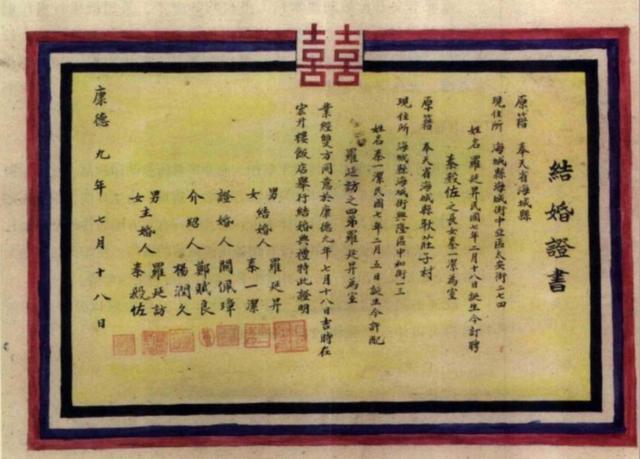 囍
結婚證書
原籍 奉天省海城縣
現住所 海城縣海城街中興區太安街二七四
姓名 羅延昇民國七年二月十八誕生今訂聘
秦毅佐之長女秦一潔為室
原籍 奉天省海城縣耿莊子村
現住所 海城縣海城街興隆區中和街一三
姓名秦一潔民國七年二月五日誕生今許配
羅延訪之四弟羅延昇為室
業經雙方同意於康德九年七月十八日吉時在
宏升樓飯店舉行結婚典禮特此證明
男
女 結婚人 羅延昇
秦一潔
證婚人 閻佩璋
介紹人 鄭斌良
楊潤久
男
女 主婚人 羅延訪
秦毅佐
康德九年七月十八日